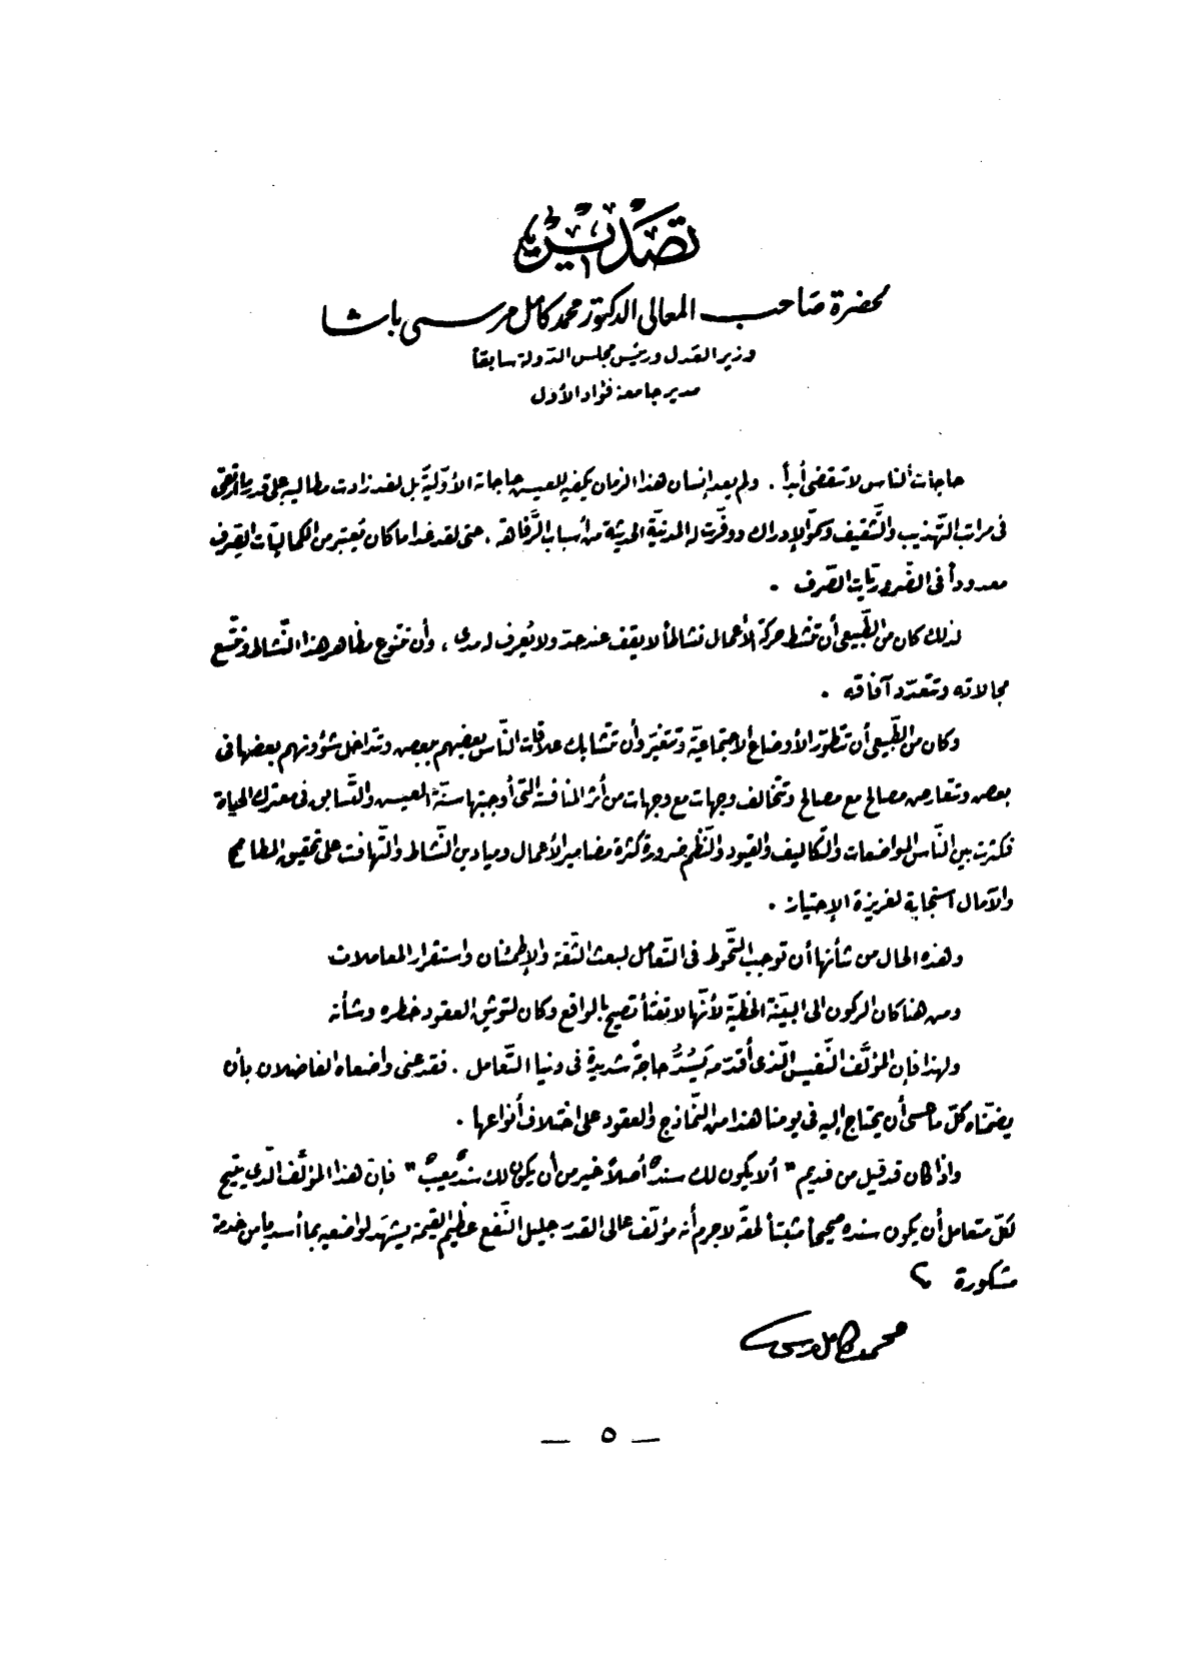 تصدير
لحضرة صاحب المعالى الدكتور محمد كامل مرسى باشا
وزير العدل ورئيس مجلس الدولة سابقاً
مدير جامعة فؤاد الأول
حاجات الناس لا تنقضى أبداً . ولم يعد إنسان هذا الزمان يكفيه للعيس حاجاته الأوّليّة بل لقد زادت مطالبه على قدر ما ارتقى
فى مراتب التّهذيب والتّثقيف وسموّ الإدراك ووفّرت له المدنيّة الحديثة من أسباب الرَّفاهة . حتى لقد غدا ما كان يُعتبر من الكماليّات الصّرف
معدوداً فى الضّروريّات الصّرف .
لذلك كان من الطّبيعى أن تنشط حركة الأعمال نشاطاً لا يقف عند حدّ ولا يُعرف له مدى ، وأن تتنوع مظاهر هذا النّشاط وتتّسع
مجالاته وتتعدّد آفاقه .
وكان من الطّبيعى أن تتطوّر الأوضاع الاجتماعيّة وتتغيّر وأن تتشابك علاقات النّاس بعضهم ببعض وتتداخل شؤونهم بعضها فى
بعض وتتعارض مصالح مع مصالح وتتخالف وجهات مع وجهات من أثر المنافسة التى أوجبتها سنّة العيس والتّسابق فى معترك الحياة
فكثرت بين النّاس المواضعات والتّكاليف والقيود والنّظم ضرورة كثرة مضامير الأعمال وميادين النّشاط والتّهافت على تحقيق المطامح
والآمال استجابة لغريزة الإحتياز .
وهذه الحال من شأنها أن توجب التّحوط فى التّعامل لبعث الثّقة والإطمئنان واستقرار المعاملات
ومن هنا كان الركون الى البيّنة الخطيّة لأنّها لا تفتأ تصيح بالواقع وكان لتوثيق العقود خطره وشأنه
ولهذا فإن المؤلَّف النّفيس الّذى أقدّمه يَسُدُّ حاجةً شديدةً فى دنيا التّعامل . فقد عنى واضعاه الفاضلان بأن
يضمّناه كلّ ما عسى أن يحتاج إليه فى يومنا هذا من النّماذج والعقود على اختلاف أنواعها .
واذا كان قد قيل من قديم " ألا يكون لك سندٌ أصلاً خير من أن يكون لك سندٌ معيبٌ " فإنّ هذا المؤلَّف الّذى يتيح
لكلّ متعامل أن يكون سنده صحيحاً مثبتاً لحقّه لا جرم أنه مؤلّف عالى القدر جليل النّفع عظيم القيمة يشهد لواضعيه بما أسديا من خدمة
مشكورة
محمد كامل مرسى
— ٥ —